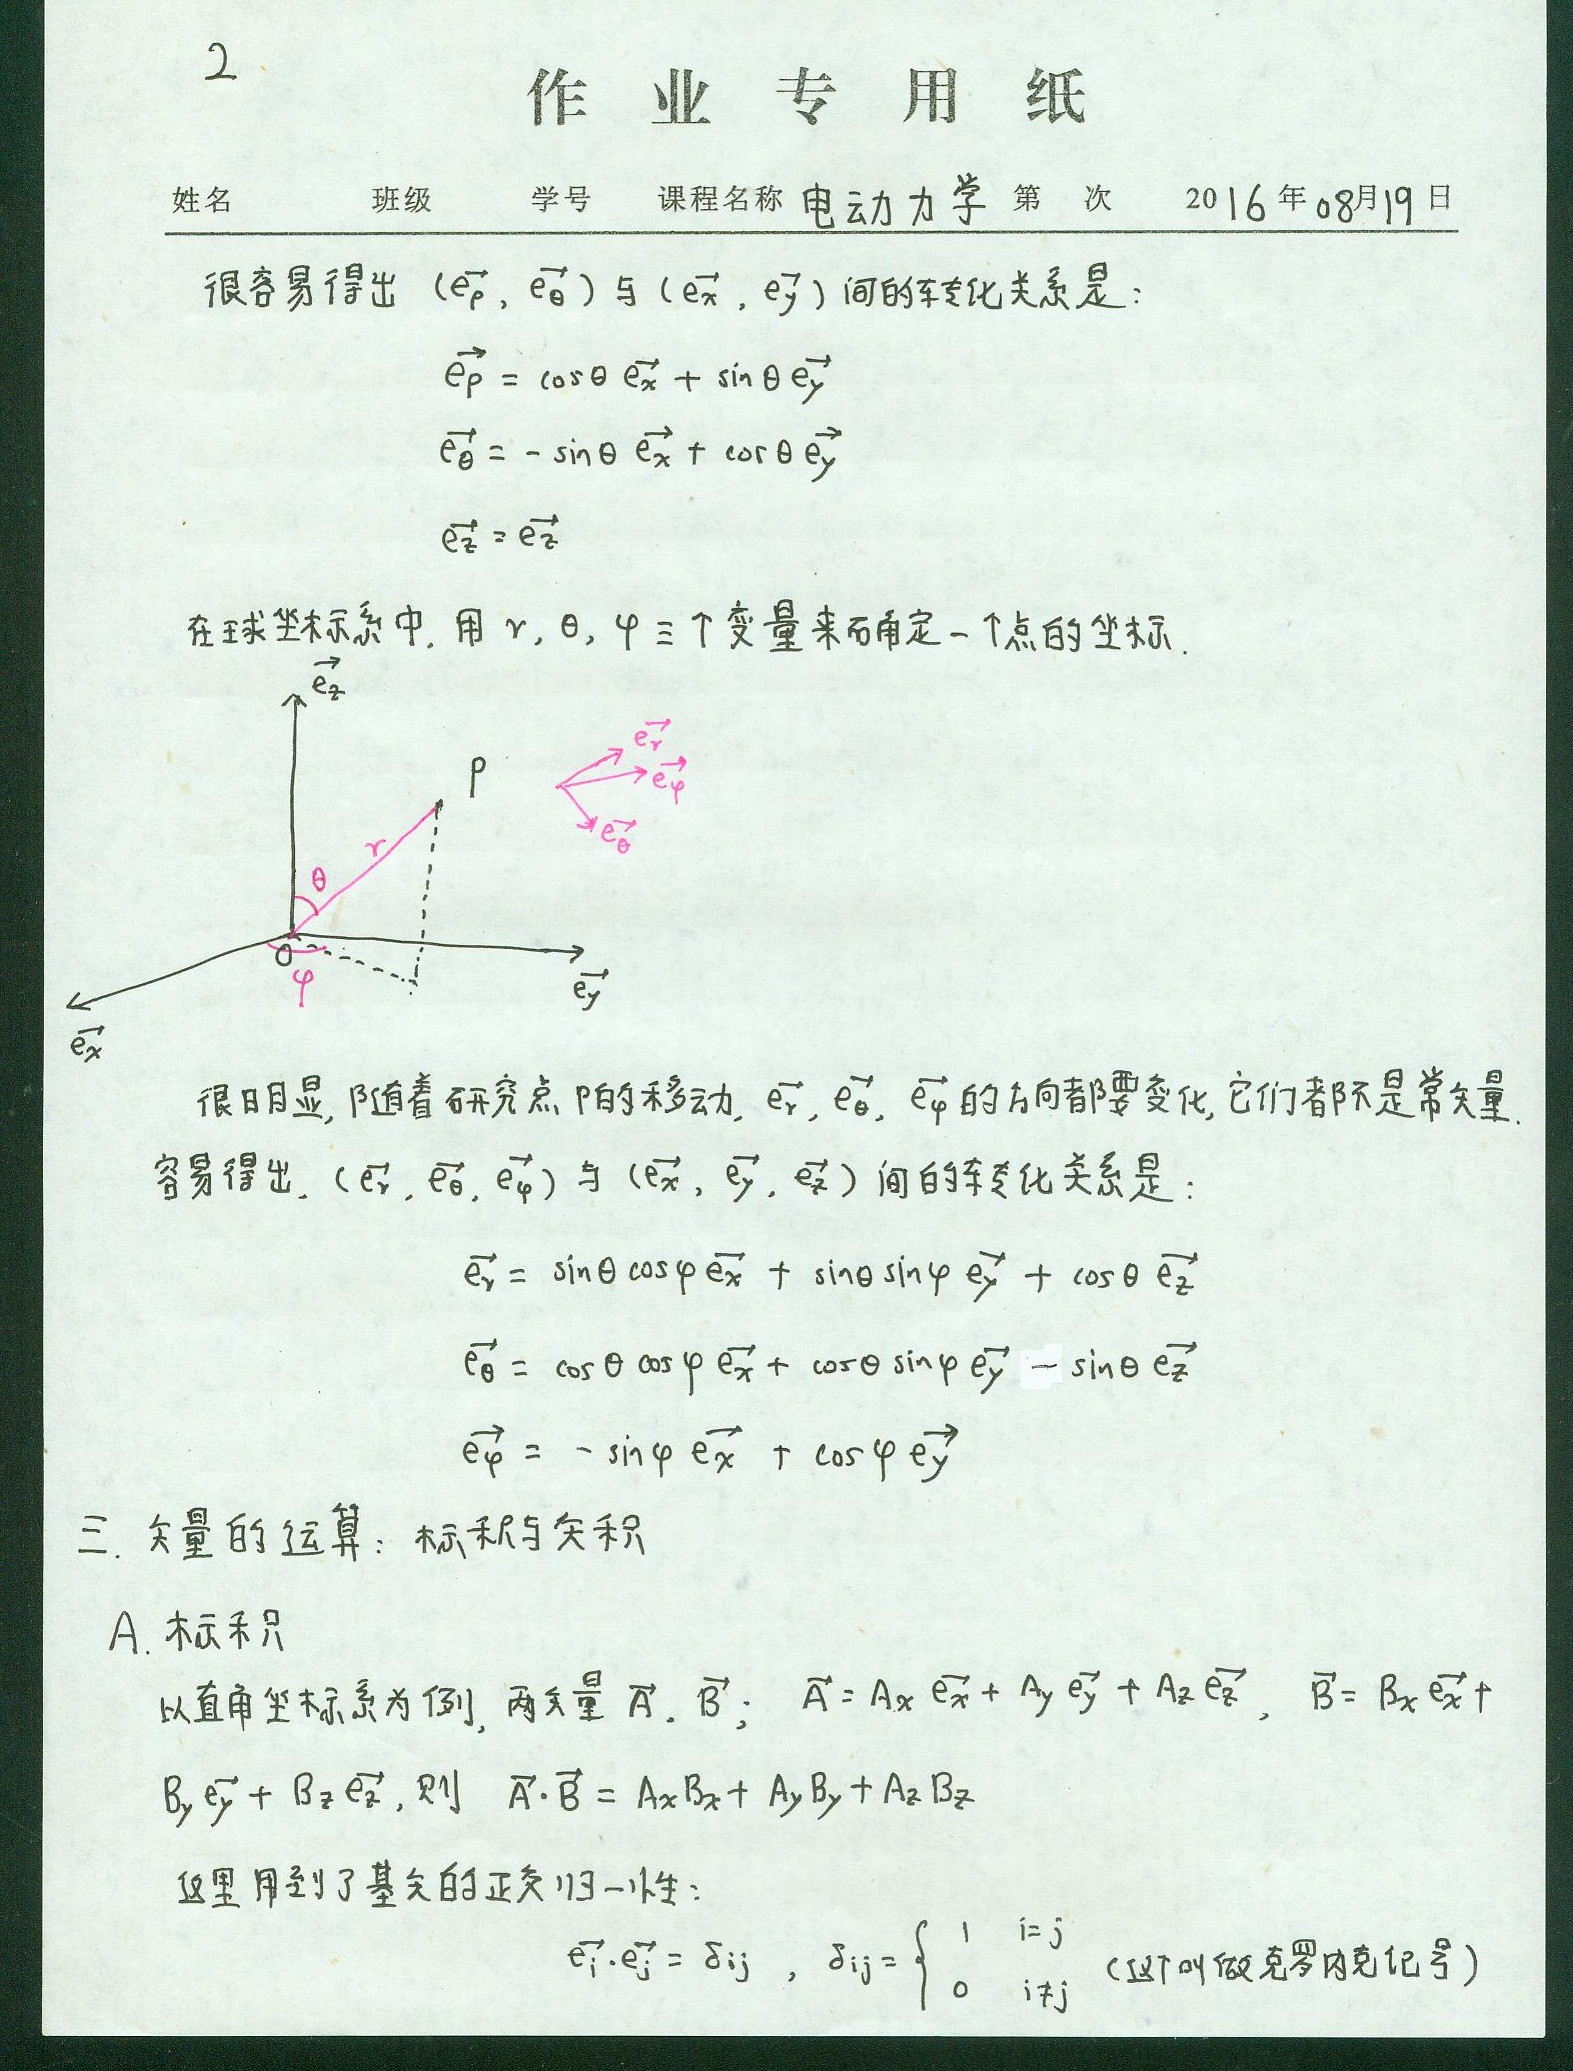 2
作业专用纸
姓名 班级 学号 课程名称 电动力学 第 次 2016年08月19日
很容易得出 (e⃗ρ, e⃗θ) 与 (e⃗x, e⃗y) 间的转变化关系是:
e⃗ρ = cosθ e⃗x + sinθ e⃗y
e⃗θ = - sinθ e⃗x + cosθ e⃗y
e⃗z = e⃗z
在球坐标系中, 用 r, θ, φ 三个变量来确定一个点的坐标.
e⃗z
e⃗r
P
e⃗φ
r
e⃗θ
θ
O
φ
e⃗y
e⃗x
很明显, 随着研究点P的移动, e⃗r, e⃗θ, e⃗φ 的方向都要变化, 它们都不是常矢量.
容易得出, (e⃗r, e⃗θ, e⃗φ) 与 (e⃗x, e⃗y, e⃗z) 间的转变化关系是:
e⃗r = sinθ cosφ e⃗x + sinθ sinφ e⃗y + cosθ e⃗z
e⃗θ = cosθ cosφ e⃗x + cosθ sinφ e⃗y - sinθ e⃗z
e⃗φ = - sinφ e⃗x + cosφ e⃗y
三. 矢量的运算: 标积与矢积
A. 标积
以直角坐标系为例, 两矢量 A⃗, B⃗; A⃗ = Ax e⃗x + Ay e⃗y + Az e⃗z, B⃗ = Bx e⃗x +
By e⃗y + Bz e⃗z, 则 A⃗·B⃗ = AxBx + AyBy + AzBz
这里用到了基矢的正交归一性:
e⃗i·e⃗j = δij , δij = { 1 i=j
0 i≠j (这个叫做克罗内克记号)